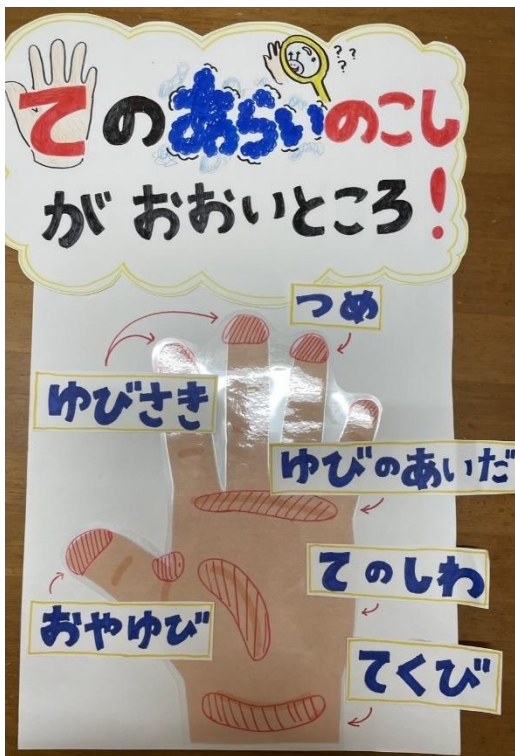 てのあらいのこし
がおおいところ!
???
つめ
ゆびさき
ゆびのあいだ
てのしわ
おやゆび
てくび